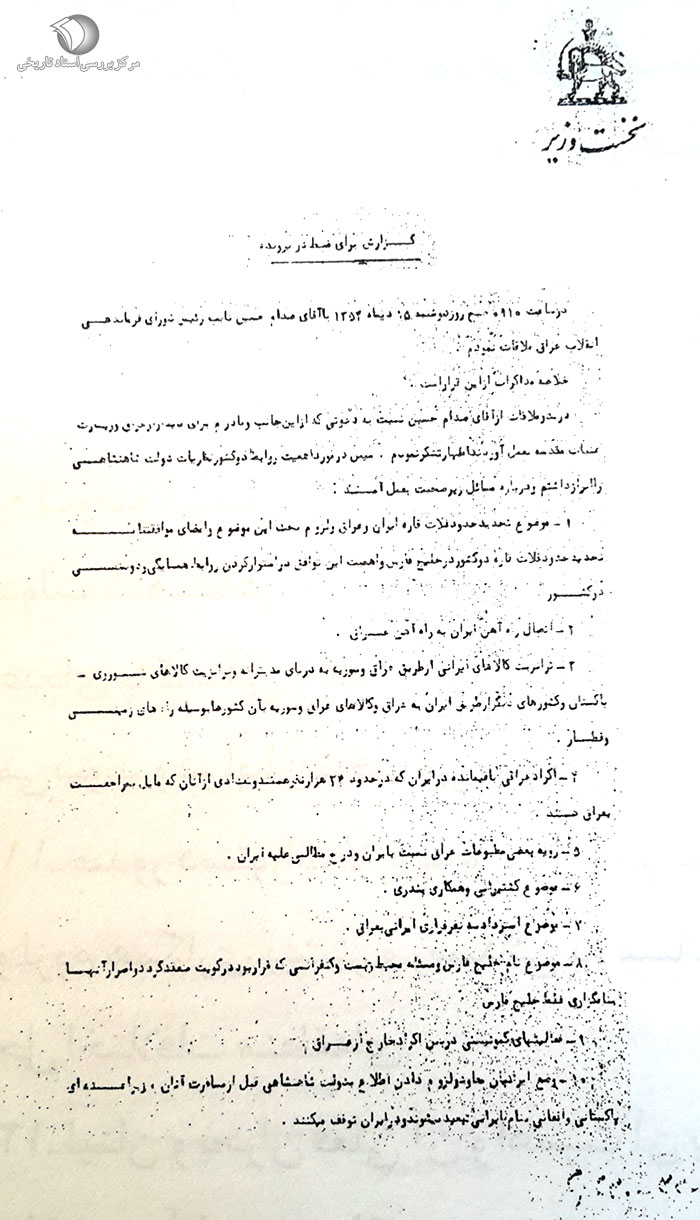 مرکز بررسی اسناد تاریخی
نخست وزیر
گزارش برای ضبط در پرونده
در ساعت ۹۱۰ صبح روز دوشنبه ۱۵ دیماه ۱۳۵۴ با آقای صدام حسین نایب رئیس شورای فرماندهی
انقلاب عراق ملاقات نمودم .
خلاصه مذاکرات از این قرار است .
در بدو ملاقات از آقای صدام حسین نسبت به دعوتی که از این جانب و مادرم برای و زیارت
عتبات مقدسه بعمل آوردند اظهار تشکر نمودم . سپس در مورد اهمیت روابط دو کشور نظریات دولت شاهنشاهی
را ابراز داشتم و درباره مسائل زیر صحبت بعمل آمد :
۱ - موضوع تحدید حدود فلات قاره ایران و عراق و لزوم بحث این موضوع و امضای موافقتنامه
تحدید حدود فلات قاره دو کشور در خلیج فارس و اهمیت این توافق در استوار کردن روابط همسایگی و دوستی
دو کشور
۲ - اتصال راه آهن ایران به راه آهن عراق .
۳ - ترانزیت کالاهای ایرانی از طریق عراق و سوریه به دریای مدیترانه و ترانزیت کالاهای شوروی -
پاکستان و کشورهای دیگر از طریق ایران به عراق و کالاهای عراق و سوریه بآن کشورها بوسیله راه های زمینی
و قطار .
۴ - اکراد عراقی باقیمانده در ایران که در حدود ۲۴ هزار نفر هستند و تعدادی از آنان که مایل بمراجعت
بعراق هستند .
۵ - رویه بعضی مطبوعات عراق نسبت بایران و درج مطالبی علیه ایران .
۶ - موضوع کشتیرانی و همکاری بندری .
۷ - موضوع استرداد سه نفر فراری ایرانی بعراق .
۸ - موضوع نام خلیج فارس و مسئله محیط زیست و کنفرانسی که قرار بود در کویت منعقد گردد و اصرار آنها
بنامگذاری فقط خلیج فارس
۹ - فعالیتهای کمونیستی در بین اکراد خارج از عراق .
۱۰ - وضع ایرانیان معاود و لزوم دادن اطلاع بدولت شاهنشاهی قبل از مبادرت آنان زیرا عده ای
پاکستانی و افغانی بنام ایرانی تبعید میشوند و در ایران توقف میکنند .